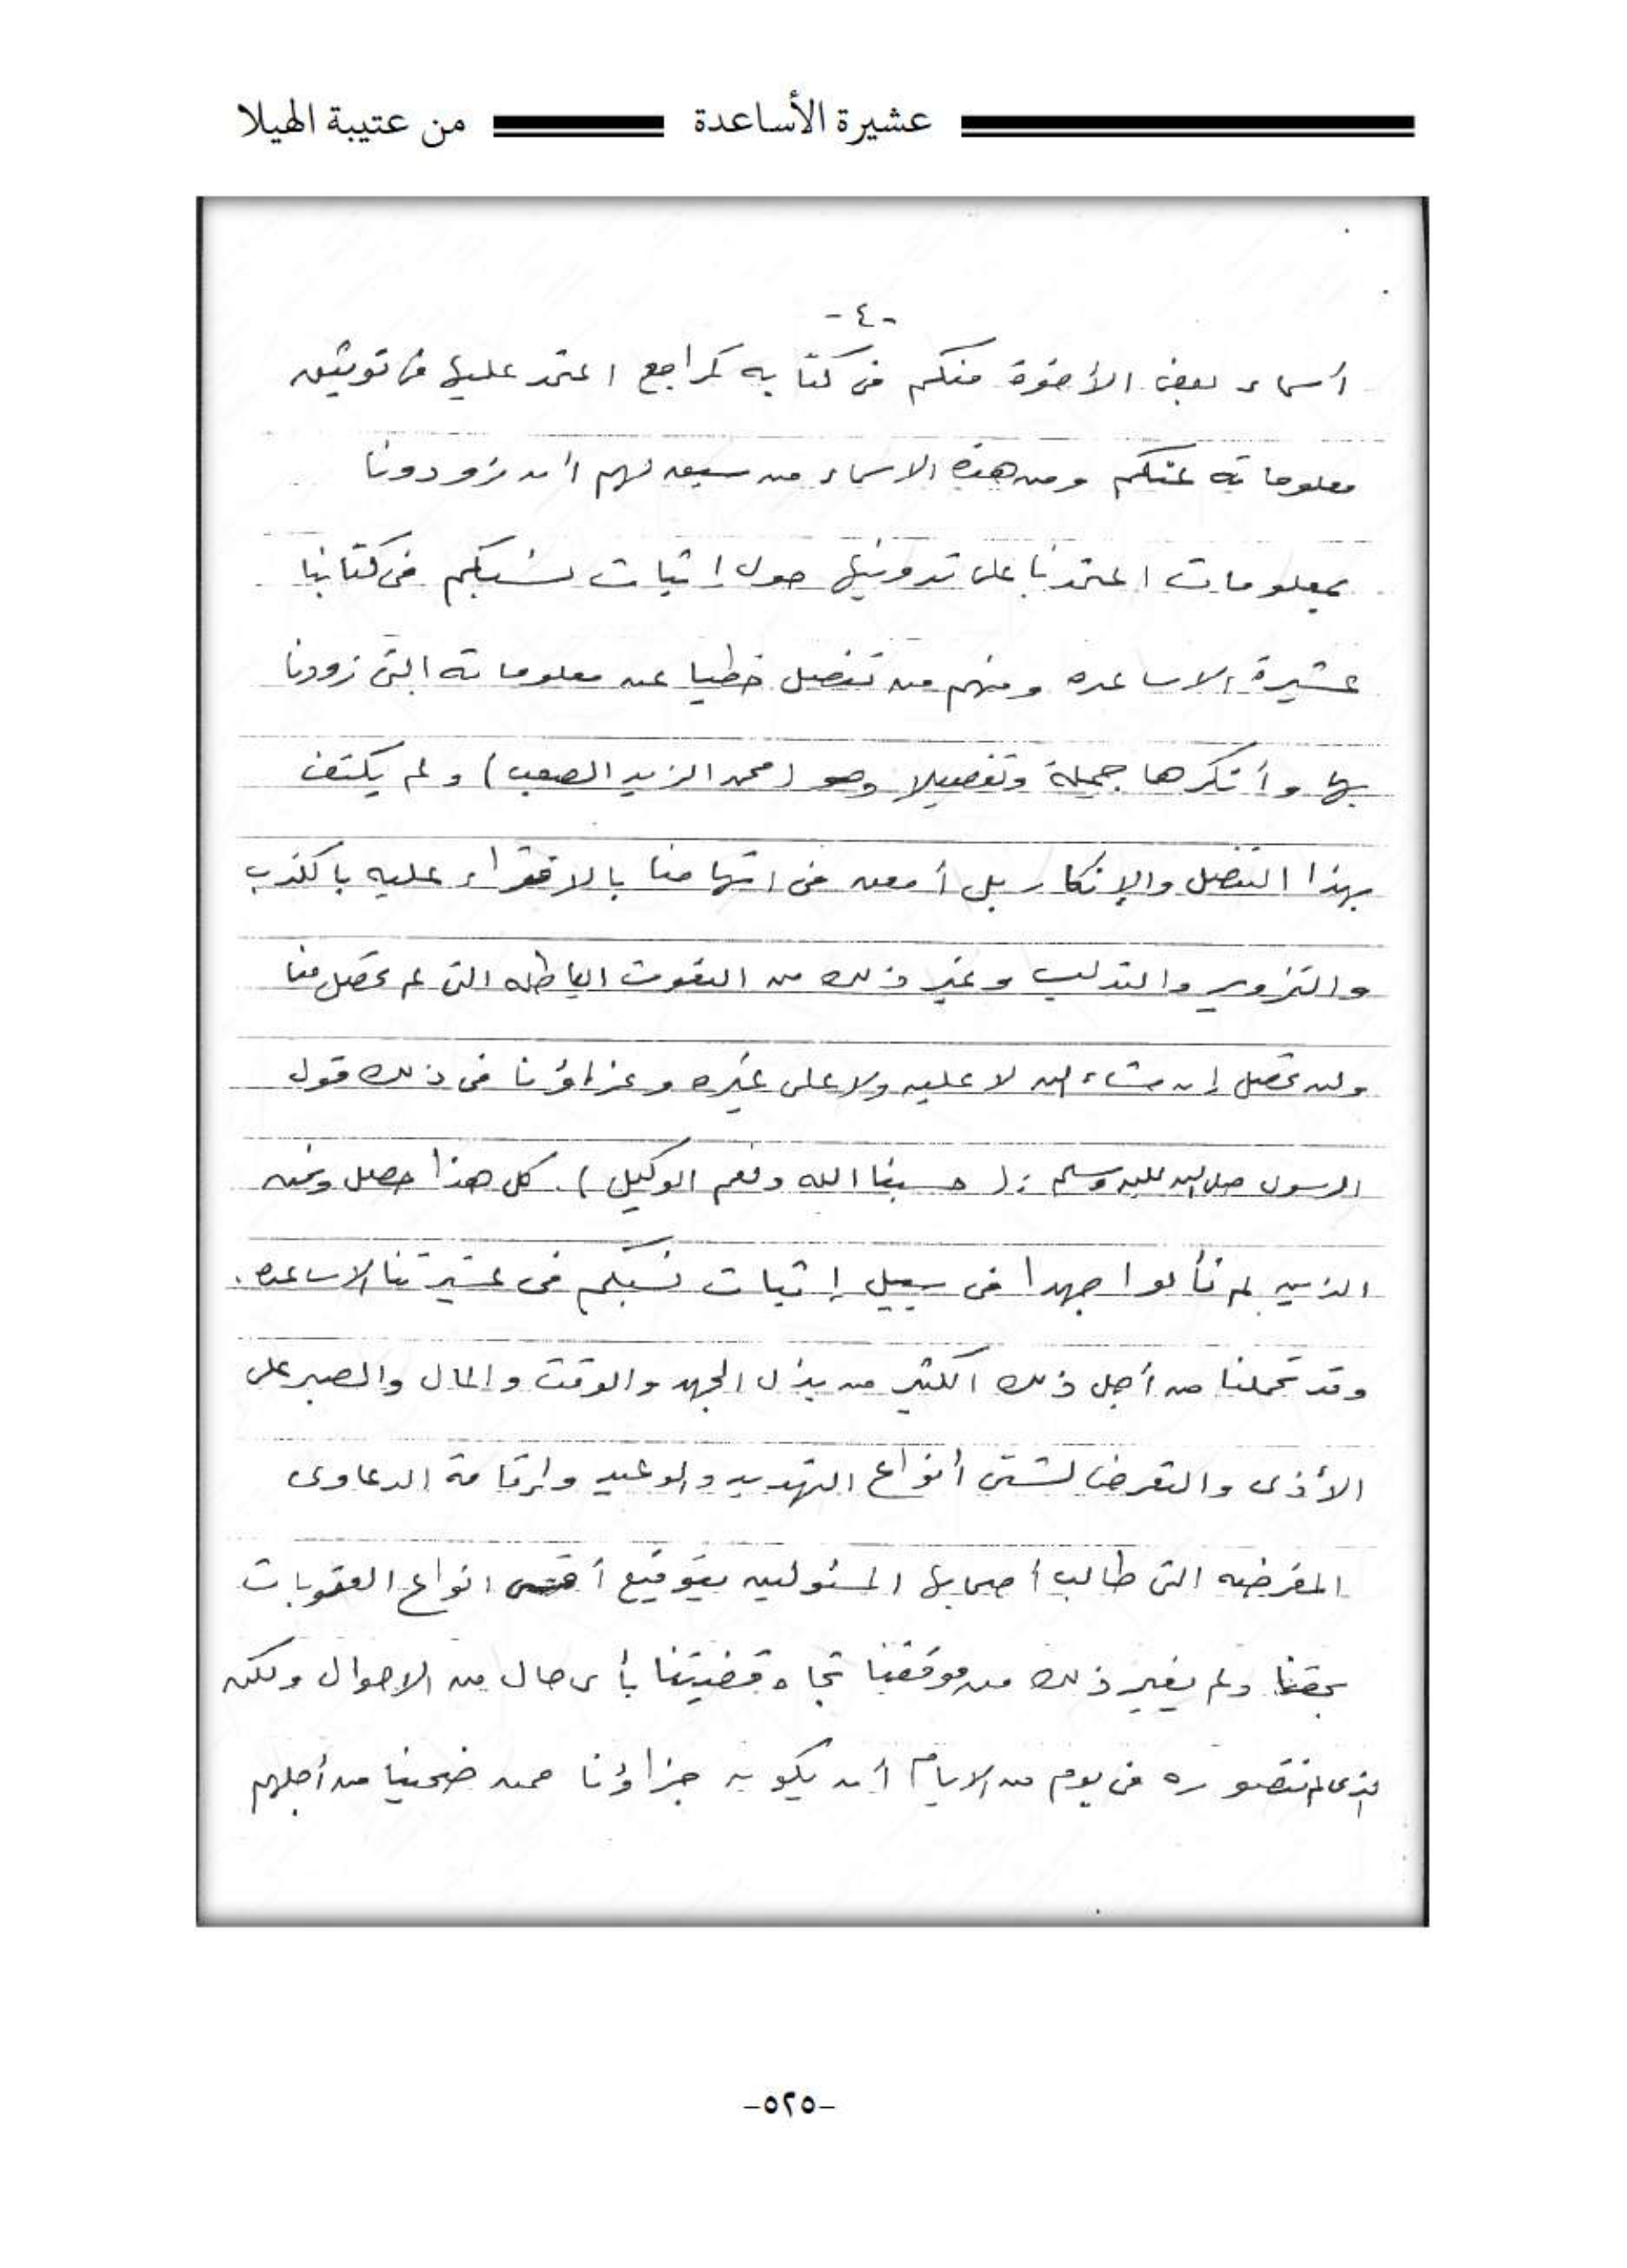 عشيرة الأساعدة من عتيبة الهيلا
-٤-
أسماء بعض الأخوة منكم في كتابه كمراجع اعتمد عليها في توثيق
معلوماته عنكم ومن هذه الاسماء من سبق لهم أن زودونا
بمعلومات اعتمدنا على تدوينها حول إثبات نسبكم في كتابنا
عشيرة الاساعده ومنهم من تنصل خطيا عن معلوماته التي زودنا
بها وأنكرها جملة وتفصيلا وهو (محمد الزيد الصعب) ولم يكتف
بهذا التنصل والإنكار بل أمعن في اتهامنا بالافتراء عليه بالكذب
والتزوير والتدليس وغير ذلك من النعوت الباطله التي لم تحصل منا
ولن تحصل إن شاء الله لا عليه ولا على غيره وعزاؤنا في ذلك قول
الرسول صلى الله عليه وسلم : (حسبنا الله ونعم الوكيل). كل هذا حصل ونحن
الذين لم نألوا جهدا في سبيل إثبات نسبكم في عشيرتنا الاساعده.
وقد تحملنا من أجل ذلك الكثير من بذل الجهد والوقت والمال والصبر على
الأذى والتعرض لشتى أنواع التهديد والوعيد وإقامة الدعاوى
المغرضه التي طالب أصحابها المسئولين بتوقيع أقسى انواع العقوبات
بحقنا ولم يغير ذلك من موقفنا تجاه قضيتنا بأى حال من الاحوال ولكن
الذى لم نتصوره في يوم من الايام أن يكون جزاؤنا ممن ضحينا من أجلهم
-٥٢٥-